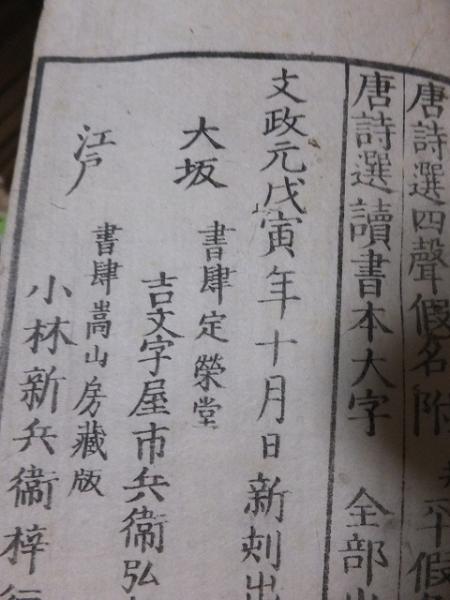 唐詩選四聲假名附 平假名
唐詩選讀書本大字 全部
文政元戊寅年十月日新刻出
大坂 書肆定榮堂
吉文字屋市兵衞弘
江戸 書肆嵩山房藏版
小林新兵衞梓行